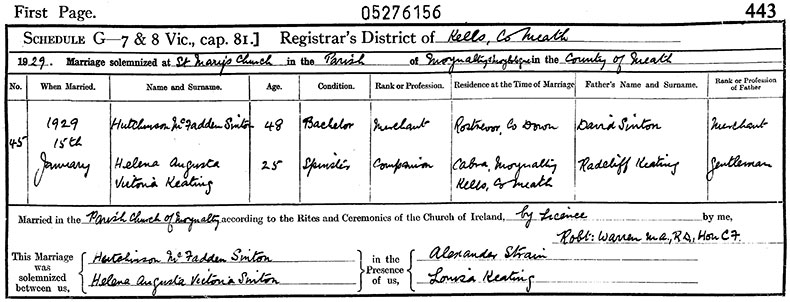 First Page. 05276156 443
SCHEDULE G—7 & 8 Vic., cap. 81.] Registrar's District of Kells, Co Meath
1929. Marriage solemnized at St Mary's Church in the Parish of Moynalty in the County of Meath
No. When Married. Name and Surname. Age. Condition. Rank or Profession. Residence at the Time of Marriage Father's Name and Surname. Rank or Profession of Father
45 1929 15th January
Hutchinson McFadden Sinton 48 Bachelor Merchant Rostrevor, Co Down David Sinton Merchant
Helena Augusta Victoria Keating 25 Spinster Companion Cabra, Moynalty Kells, Co Meath Radcliff Keating Gentleman
Married in the Parish Church of Moynalty according to the Rites and Ceremonies of the Church of Ireland, by Licence by me,
Robt: Warren M.A., R.D., Hon C.F.
This Marriage was solemnized between us, Hutchinson McFadden Sinton in the Presence of us, Alexander Strain
Helena Augusta Victoria Sinton Louisa Keating